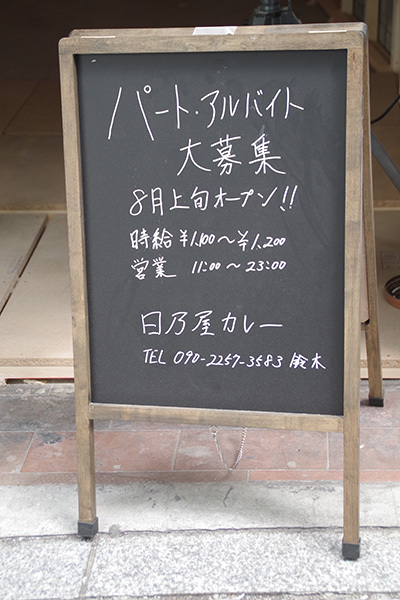 パート・アルバイト
大募集
8月上旬オープン!!
時給¥1,100〜¥1,200
営業 11:00〜23:00
日乃屋カレー
TEL 090-2257-3583 鈴木